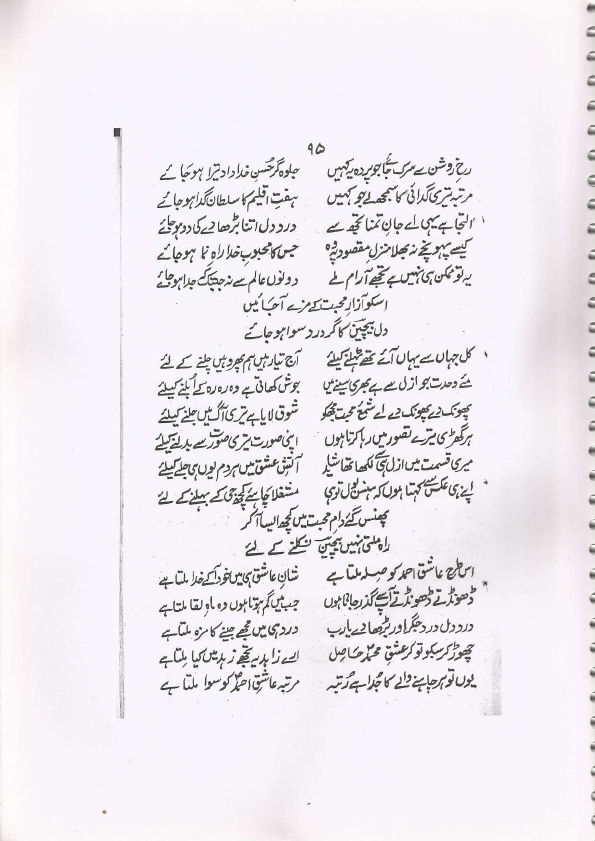 ۹۵
رخِ روشن سے سرک جائے جو پردہ یہ کہیں جلوہ گر حُسنِ خداداد تیرا ہو جائے
مرتبہ تیری گدائی کا سمجھ لے جو کہیں ہفت اقلیم کا سلطان گدا ہو جائے
التجا ہے یہی اے جانِ تمنا تجھ سے دردِ دل اتنا بڑھا دے کہ دوا ہو جائے
کیسے پہونچے نہ بھلا منزلِ مقصود پہ وہ جس کا محبوبِ خدا راہ نما ہو جائے
یہ تو ممکن ہی نہیں ہے تجھے آرام ملے دونوں عالم سے نہ جبتک جدا ہو جائے
اسکو آزارِ محبت کے مزے آجائیں
دل بیچین کا گر درد سوا ہو جائے
کل جہاں سے یہاں آئے تھے ٹہلنے کیلئے آج تیار ہیں ہم پھر وہیں چلنے کے لئے
مئے وحدت جو ازل سے ہے بھری سینے میں جوش کھاتی ہے وہ رہ رہ کے اُبلنے کیلئے
پھونک دے پھونک دے اے شمعِ محبت مجھکو شوق لایا ہے تری آگ میں جلنے کیلئے
ہر گھڑی میں ترے تصور میں رہا کرتا ہوں اپنی صورت تیری صورت سے بدلنے کیلئے
میری قسمت میں ازل ہی سے لکھا تھا شاید آتشِ عشق میں ہر دم یوں ہی جلنے کیلئے
اپنے ہی عکس سے کہتا ہوں کہ ہنس بول تو ہی مشغلا چاہئے کچھ جی کے بہلنے کے لئے
پھنس گئے دامِ محبت میں کچھ ایسا آکر
راہ ملتی نہیں بیچین نکلنے کے لئے
اس طرح عاشقِ احمد کو صلہ ملتا ہے شانِ عاشق ہی میں خود آکے خدا ملتا ہے
ڈھونڈتے ڈھونڈتے آپے سے گذر جاتا ہوں جب میں گم ہوتا ہوں وہ ماہ لقا ملتا ہے
دردِ دل دردِ جگر اور بڑھا دے یارب درد ہی میں مجھے جینے کا مزہ ملتا ہے
چھوڑ کر سبکو تو کر عشقِ محمدؐ حاصل اے زاہد یہ تجھے زہد میں کیا ملتا ہے
یوں تو ہر چاہنے والے کا جُدا ہے رُتبہ مرتبہ عاشقِ احمدؐ کو سوا ملتا ہے